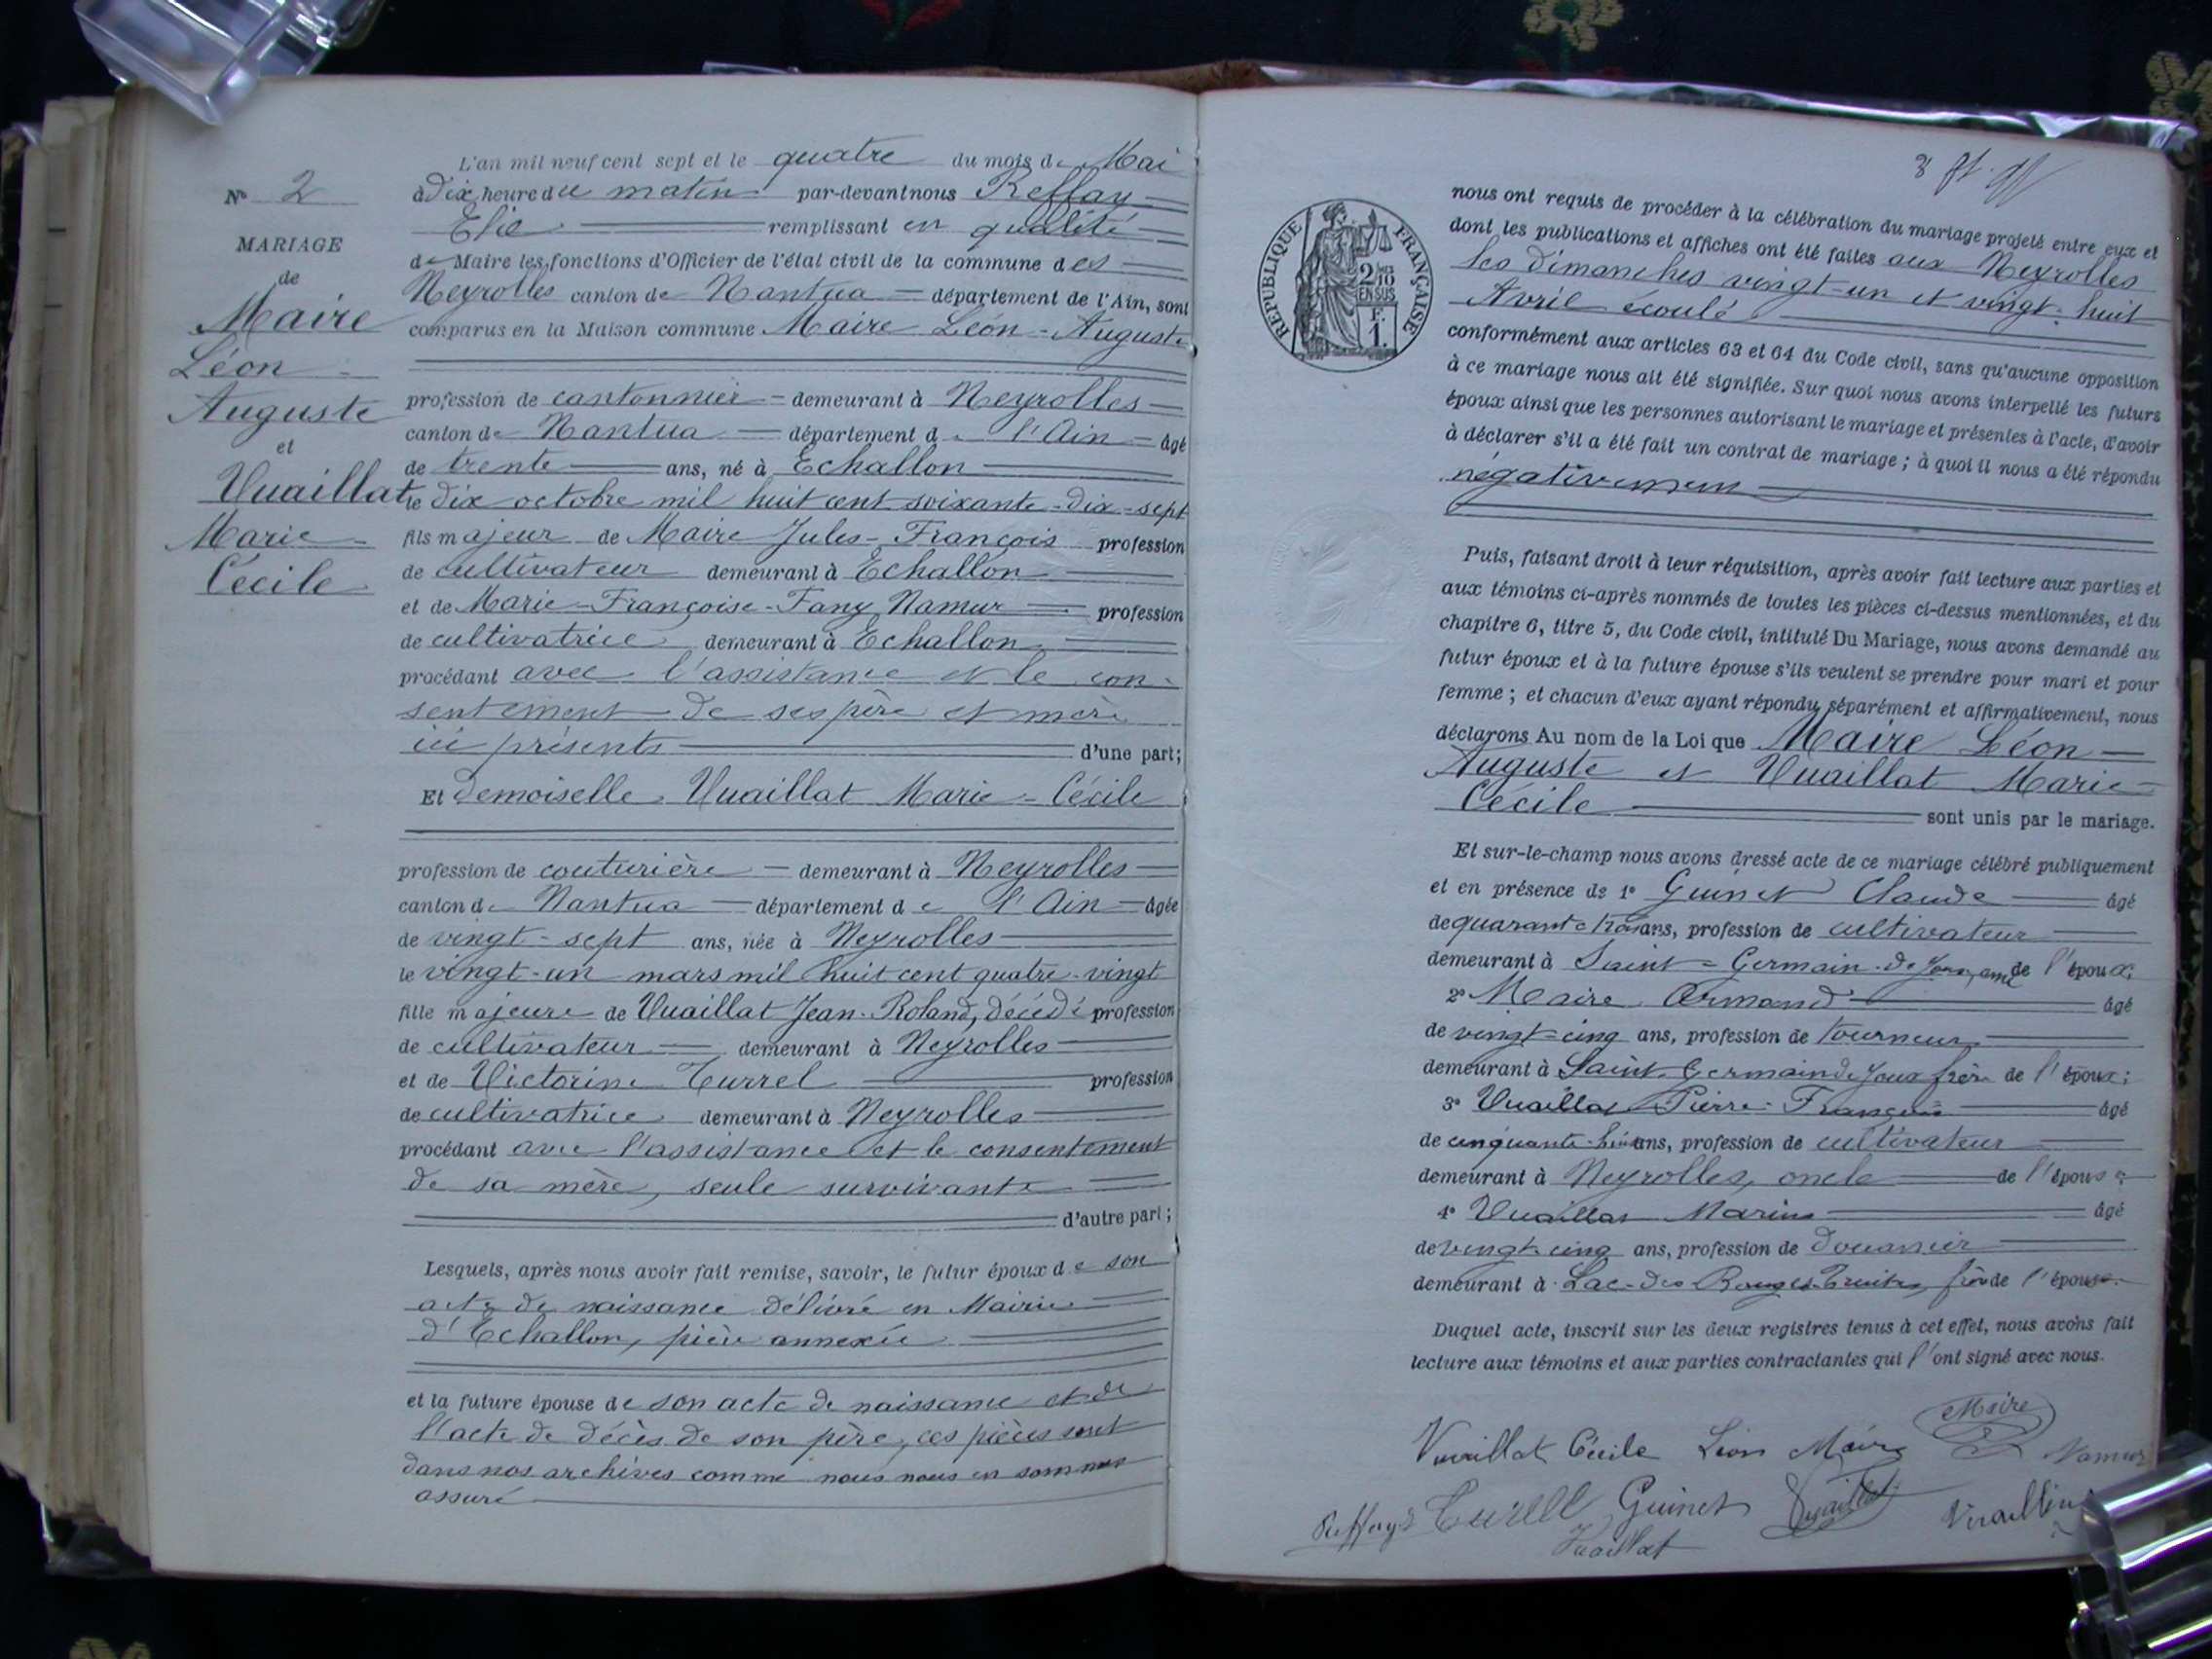 N° 2
MARIAGE
de
Maire
Léon
Auguste
et
Vuaillat
Marie
Cécile
L'an mil neuf cent sept et le quatre du mois de Mai
à dix heure du matin par-devant nous Reffay
Elie remplissant en qualité
de Maire les fonctions d'Officier de l'état civil de la commune des
Neyrolles canton de Nantua département de l'Ain, sont
comparus en la Maison commune Maire Léon-Auguste
profession de cantonnier demeurant à Neyrolles
canton de Nantua département de l'Ain âgé
de trente ans, né à Echallon
le dix octobre mil huit cent soixante-dix-sept
fils majeur de Maire Jules-François profession
de cultivateur demeurant à Echallon
et de Marie-Françoise-Fany Namur profession
de cultivatrice demeurant à Echallon
procédant avec l'assistance et le con-
sentement de ses père et mère
ici présents d'une part;
Et Demoiselle Vuaillat Marie-Cécile
profession de couturière demeurant à Neyrolles
canton de Nantua département de l'Ain âgée
de vingt-sept ans, née à Neyrolles
le vingt-un mars mil huit cent quatre-vingt
fille majeure de Vuaillat Jean-Roland, décédé profession
de cultivateur demeurant à Neyrolles
et de Victorine Turrel profession
de cultivatrice demeurant à Neyrolles
procédant avec l'assistance et le consentement
de sa mère, seule survivante
d'autre part;
Lesquels, après nous avoir fait remise, savoir, le futur époux de son
acte de naissance délivré en Mairie
d'Echallon, pièce annexée
et la future épouse de son acte de naissance et de
l'acte de décès de son père, ces pièces sont
dans nos archives comme nous nous en sommes
assuré
REPUBLIQUE FRANÇAISE
2/10
EN SUS
F.
1.
nous ont requis de procéder à la célébration du mariage projeté entre eux et
dont les publications et affiches ont été faites aux Neyrolles
les dimanches vingt-un et vingt-huit
Avril écoulé
conformément aux articles 63 et 64 du Code civil, sans qu'aucune opposition
à ce mariage nous ait été signifiée. Sur quoi nous avons interpellé les futurs
époux ainsi que les personnes autorisant le mariage et présentes à l'acte, d'avoir
à déclarer s'il a été fait un contrat de mariage; à quoi il nous a été répondu
négativement
Puis, faisant droit à leur réquisition, après avoir fait lecture aux parties et
aux témoins ci-après nommés de toutes les pièces ci-dessus mentionnées, et du
chapitre 6, titre 5, du Code civil, intitulé Du Mariage, nous avons demandé au
futur époux et à la future épouse s'ils veulent se prendre pour mari et pour
femme; et chacun d'eux ayant répondu séparément et affirmativement, nous
déclarons Au nom de la Loi que Maire Léon
Auguste et Vuaillat Marie
Cécile sont unis par le mariage.
Et sur-le-champ nous avons dressé acte de ce mariage célébré publiquement
et en présence de 1° Guinet Claude âgé
de quarante trois ans, profession de cultivateur
demeurant à Saint-Germain-de-Joux, ami de l'époux;
2° Maire Armand âgé
de vingt-cinq ans, profession de tourneur
demeurant à Saint-Germain de Joux frère de l'époux;
3° Vuaillat Pierre-François âgé
de cinquante-huit ans, profession de cultivateur
demeurant à Neyrolles, oncle de l'épouse;
4° Vuaillat Marius âgé
de vingt-cinq ans, profession de douanier
demeurant à Lac-des-Rouges-Truites frère de l'épouse.
Duquel acte, inscrit sur les deux registres tenus à cet effet, nous avons fait
lecture aux témoins et aux parties contractantes qui l'ont signé avec nous.
Vuaillat Cécile Léon Maire Maire Namur
Reffay Guinet Vuaillat
Vuaillat